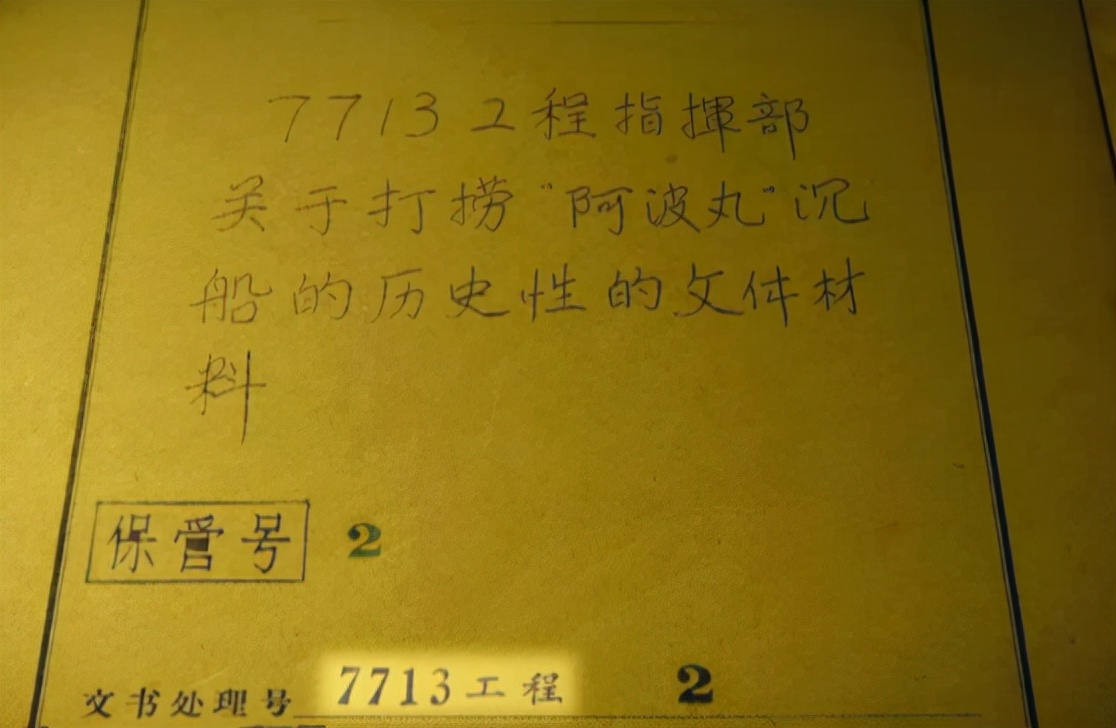 7713工程指揮部
关于打捞“阿波丸”沉
船的历史性的文件材
料
保管号 2
文书处理号 7713工程 2